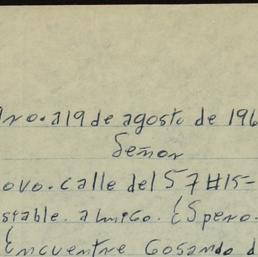 a 19 de agosto de 196
Señor
ovo. calle del 57 #15-
stable. amigo. Espero.
Encuentre Gosando d